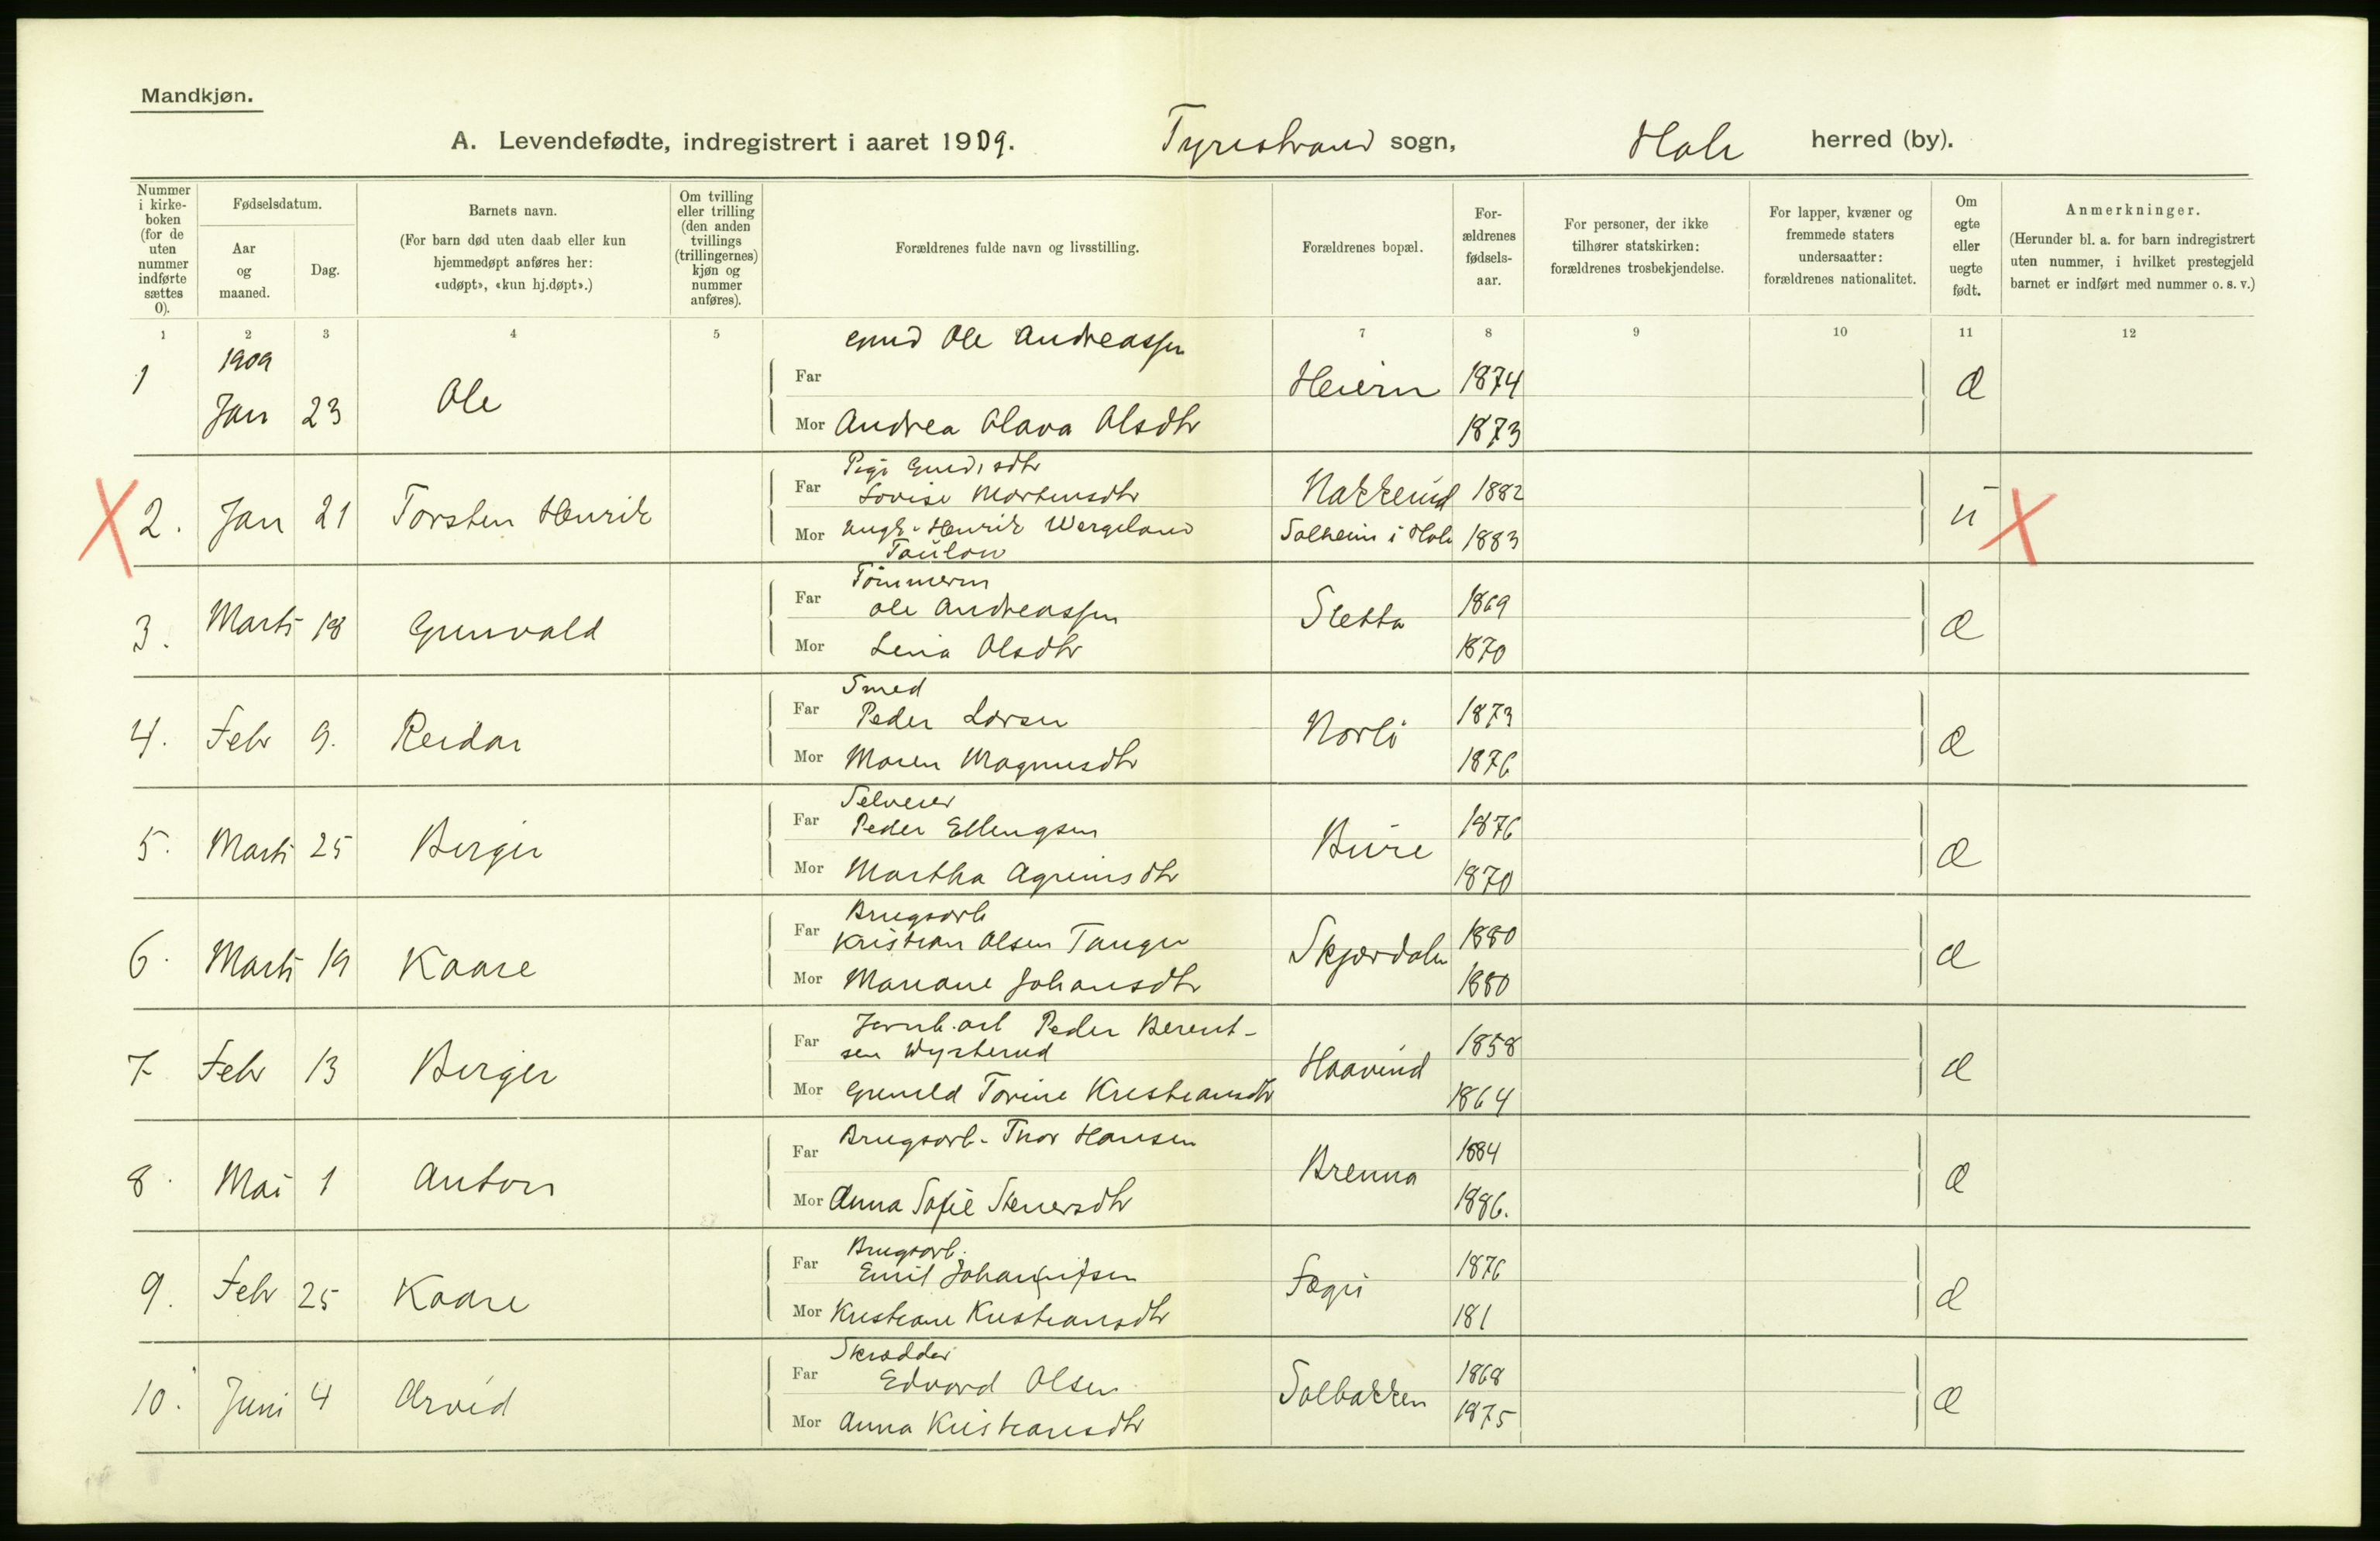 Mandkjøn.
A. Levendefødte, indregistrert i aaret 1909. Tyristrand sogn, Hole herred (by).
Nummer i kirkeboken (for de uten nummer indførte sættes 0).
Fødselsdatum.
Aar og maaned.
Dag.
Barnets navn.
(For barn død uten daab eller kun hjemmedøpt anføres her: «udøpt», «kun hj.døpt».)
Om tvilling eller trilling (den anden tvillings (trillingernes) kjøn og nummer anføres).
Forældrenes fulde navn og livsstilling.
Forældrenes bopæl.
Forældrenes fødselsaar.
For personer, der ikke tilhører statskirken: forældrenes trosbekjendelse.
For lapper, kvæner og fremmede staters undersaatter: forældrenes nationalitet.
Om egte eller uegte født.
Anmerkninger.
(Herunder bl. a. for barn indregistrert uten nummer, i hvilket prestegjeld barnet er indført med nummer o. s. v.)
1 2 3 4 5 7 8 9 10 11 12
1 1909 Jan 23 Ole
Far Ole Andreassen Heiern 1874 Æ
Mor Andrea Olava Olsdtr 1873
X 2. Jan 21 Torsten Henrik
Far Pige Lovise Mortensdtr Nakkerud 1882 u X
Mor Ungk. Henrik Wergeland Taulow Solheim i Hole 1883
3. Marts 18 Gunvald
Far Tömmerm Ole Andreassen Sletta 1869 Æ
Mor Lena Olsdtr 1870
4. Febr 9. Reidar
Far Smed Peder Larsen Norli 1873 Æ
Mor Maren Magnusdtr 1876
5. Marts 25 Birger
Far Selveier Peder Ellengsen Bure 1876 Æ
Mor Martha 1870
6. Marts 19 Kaare
Far Brugsarb Kristian Olsen Tangen Skjærdalen 1880 Æ
Mor Mariane Johansdtr 1880
7 Febr 13 Birger
Far Jernb.arb Peder Berentsen 1858 Æ
Mor Gunild Torine Kristiansdtr 1864
8. Mai 1 Anton
Far Brugsarb. Thor Hansen Brenna 1884 Æ
Mor Anna Sofie Stenersdtr 1886.
9. Febr 25 Kaare
Far Brugsarb. Emil Johannessen 1876 Æ
Mor Kristiane Kristiansdtr 181
10. Juni 4 Arvid
Far Skrædder Edvard Olsen Solbakken 1868 Æ
Mor Anna Kristiansdtr 1875